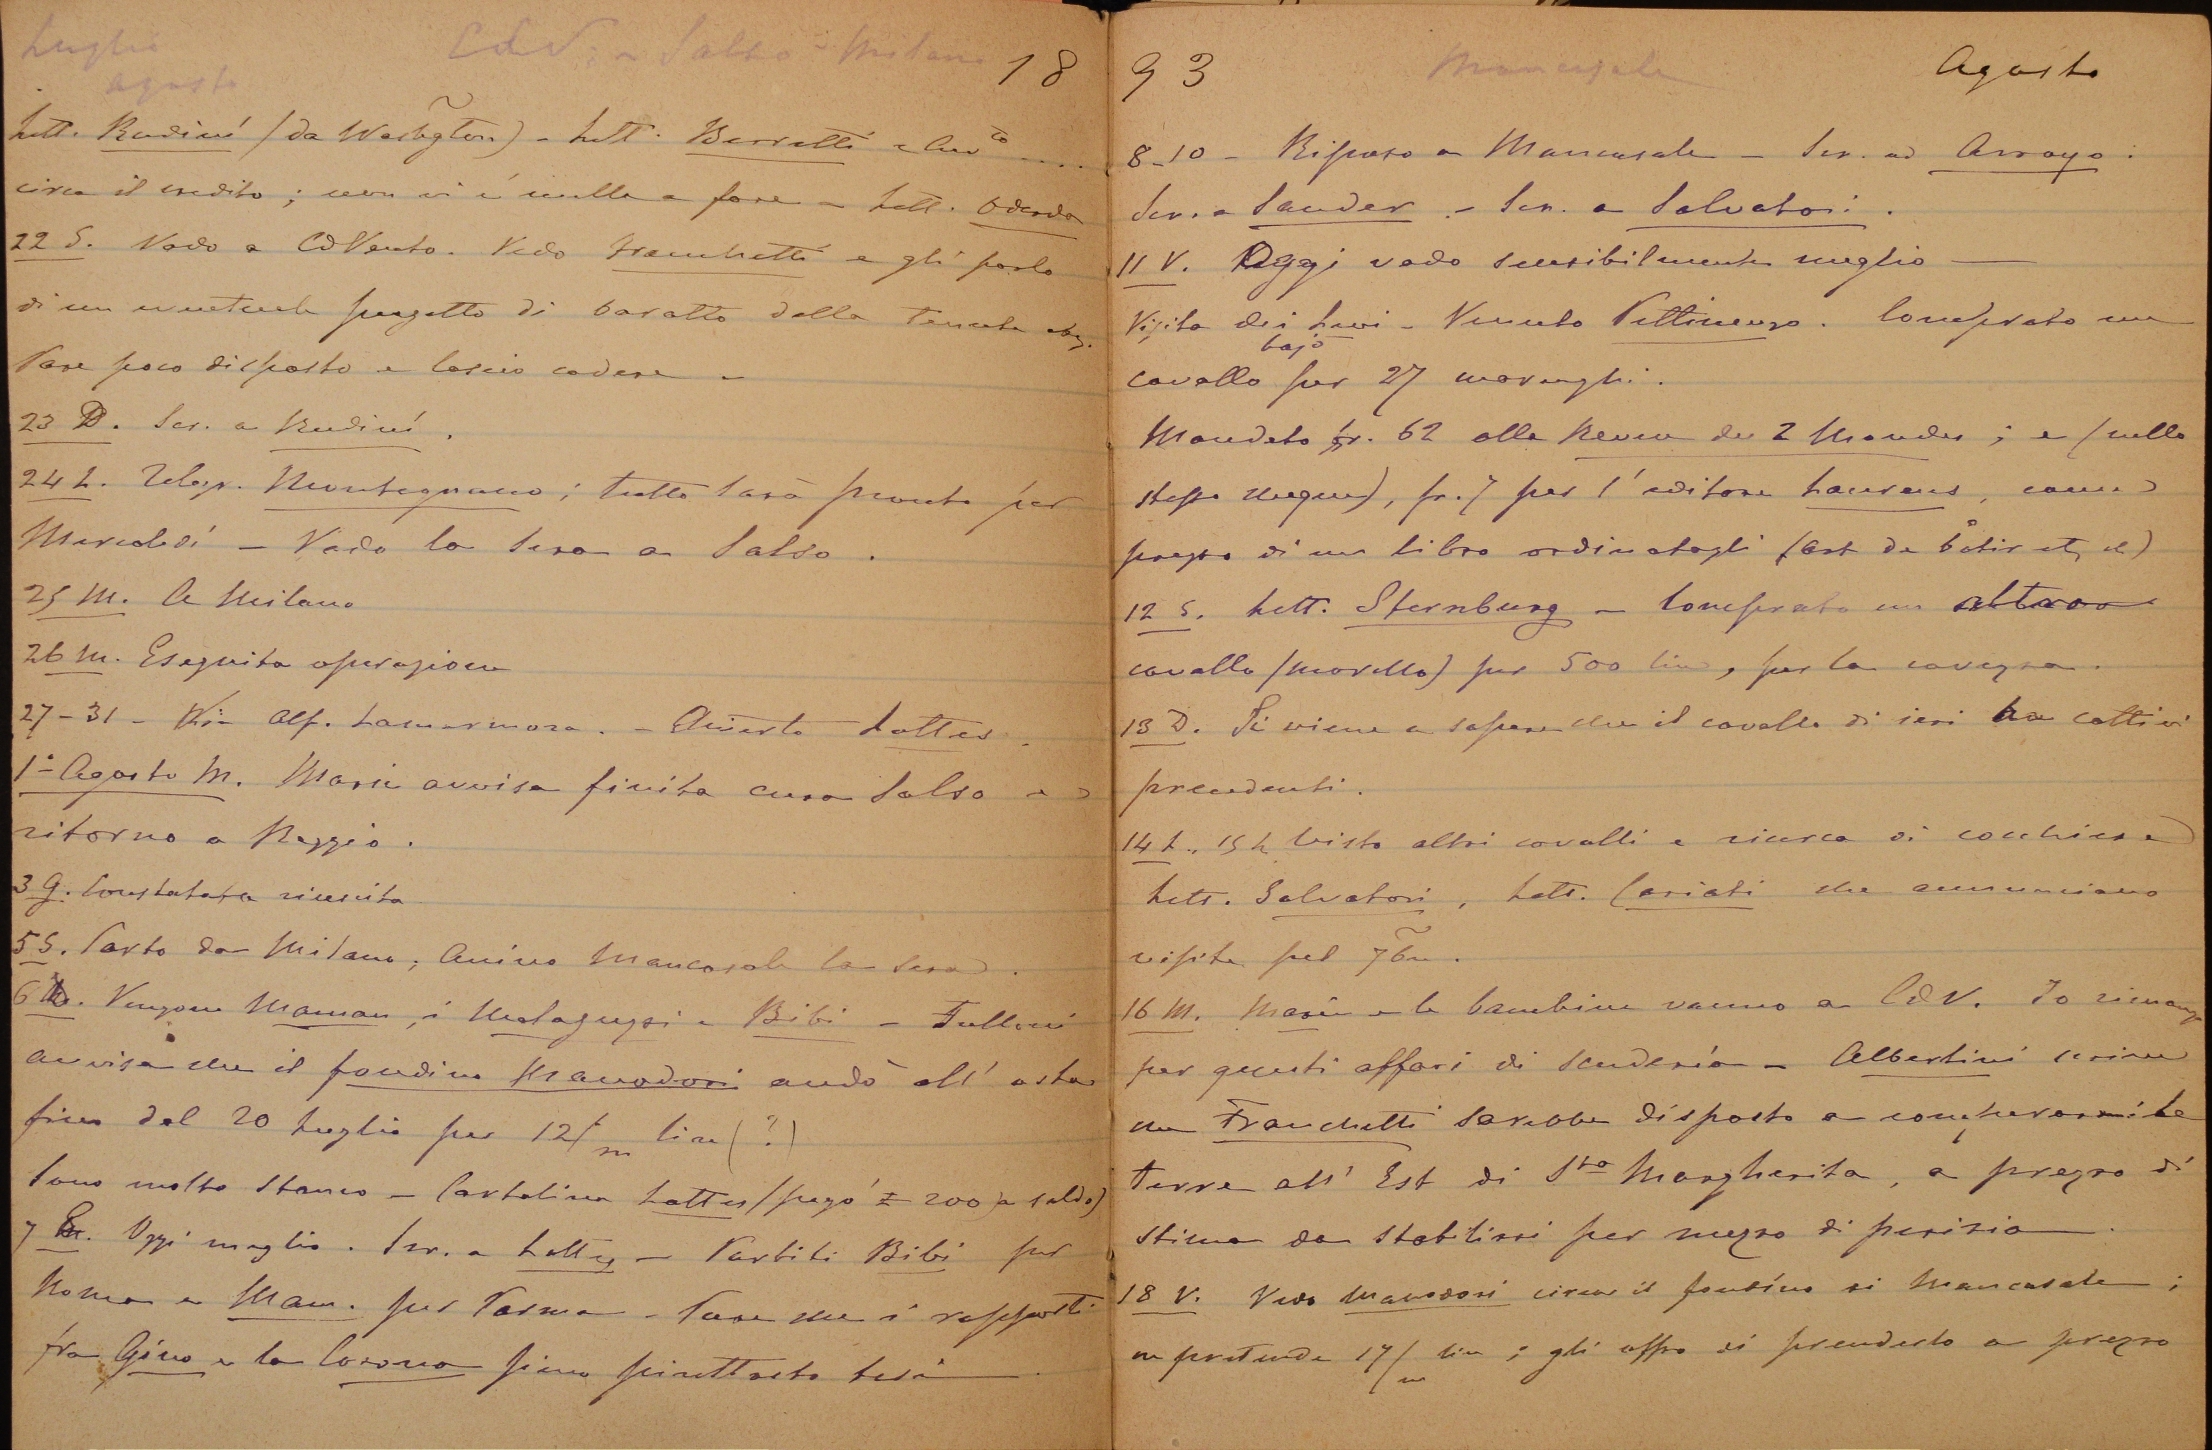 Luglio
Agosto
CdV; a Salso - Milano
18
Lett. Rudiní (da Washgton) - Lett. Barratti
circa il credito; non vi é nulla a fare - Lett. Oderda
22 S. Vado a CdVento. Vedo Franchetti e gli parlo
di un eventuale progetto di baratto della Tenuta
Pare poco disposto e lascio cadere -
23 D. Scr. a Rudiní.
24 L. Telegr. Montegnano; tutto sarà pronto per
Mercoledí - Vado la sera a Salso.
25 M. A Milano
26 M. Eseguita operazione
27-31 - Via Alf. Lamarmora. - Lattes.
1º Agosto M. Marie avvisa finita cura Salso e
ritorno a Reggio.
3 G. Constatata riuscita
5 S. Parto da Milano; Arrivo Mancasale la sera.
6 D. Vengono Maman, i Malaguzzi e Bibi - Tulloni
avvisa che il fondino Manodori andò all' asta
fino dal 20 Luglio per 12/m lire (?)
Sono molto stanco - Cartolina Lattes (pagó £ 200 a saldo)
7 L. Oggi meglio. Scr. a Lattes - Partiti Bibi per
Roma e Mam. per Parma - Pare che i rapporti
fra Gino e la Corona sieno piuttosto tesi.
93
Mancasale
Agosto
8-10 - Riposo a Mancasale - Scr. ad Arroyo.
Scr. a Sander. - Scr. a Salvatori.
11 V. Oggi vado sensibilmente meglio -
Visita dei Levi - Venuto Pettinengo. Comprato un
bajo
cavallo per 27 marenghi.
Mandato fr. 62 alla Revue des 2 Mondes; e (nello
stesso chèque), fr. 7 per l'editore Laurens, come
prezzo di un libro ordinatogli (Art de bâtir etc, etc)
12 S. Lett. Sternburg - Comprato un altro
cavallo (morello) per 500 lire, per la carrozza.
13 D. Si viene a sapere che il cavallo di ieri ha cattivi
precedenti.
14 L., 15 Visto altri cavalli e ricerca di cocchiere
Lett. Salvatori, Lett. Cariati che annunciano
visite pel 7bre.
16 M. Marie e le bambine vanno a CdV. Io rimango
per questi affari di scuderia - Albertini scrive
che Franchetti sarebbe disposto a comperarmi le
terre all' Est di Sta Margherita, a prezzo di
stima da stabilirsi per mezzo di perizia.
18 V. Vedo Manodori circa il fondino di Mancasale;
ne pretende 17/m lire; gli offro di prenderlo a prezzo